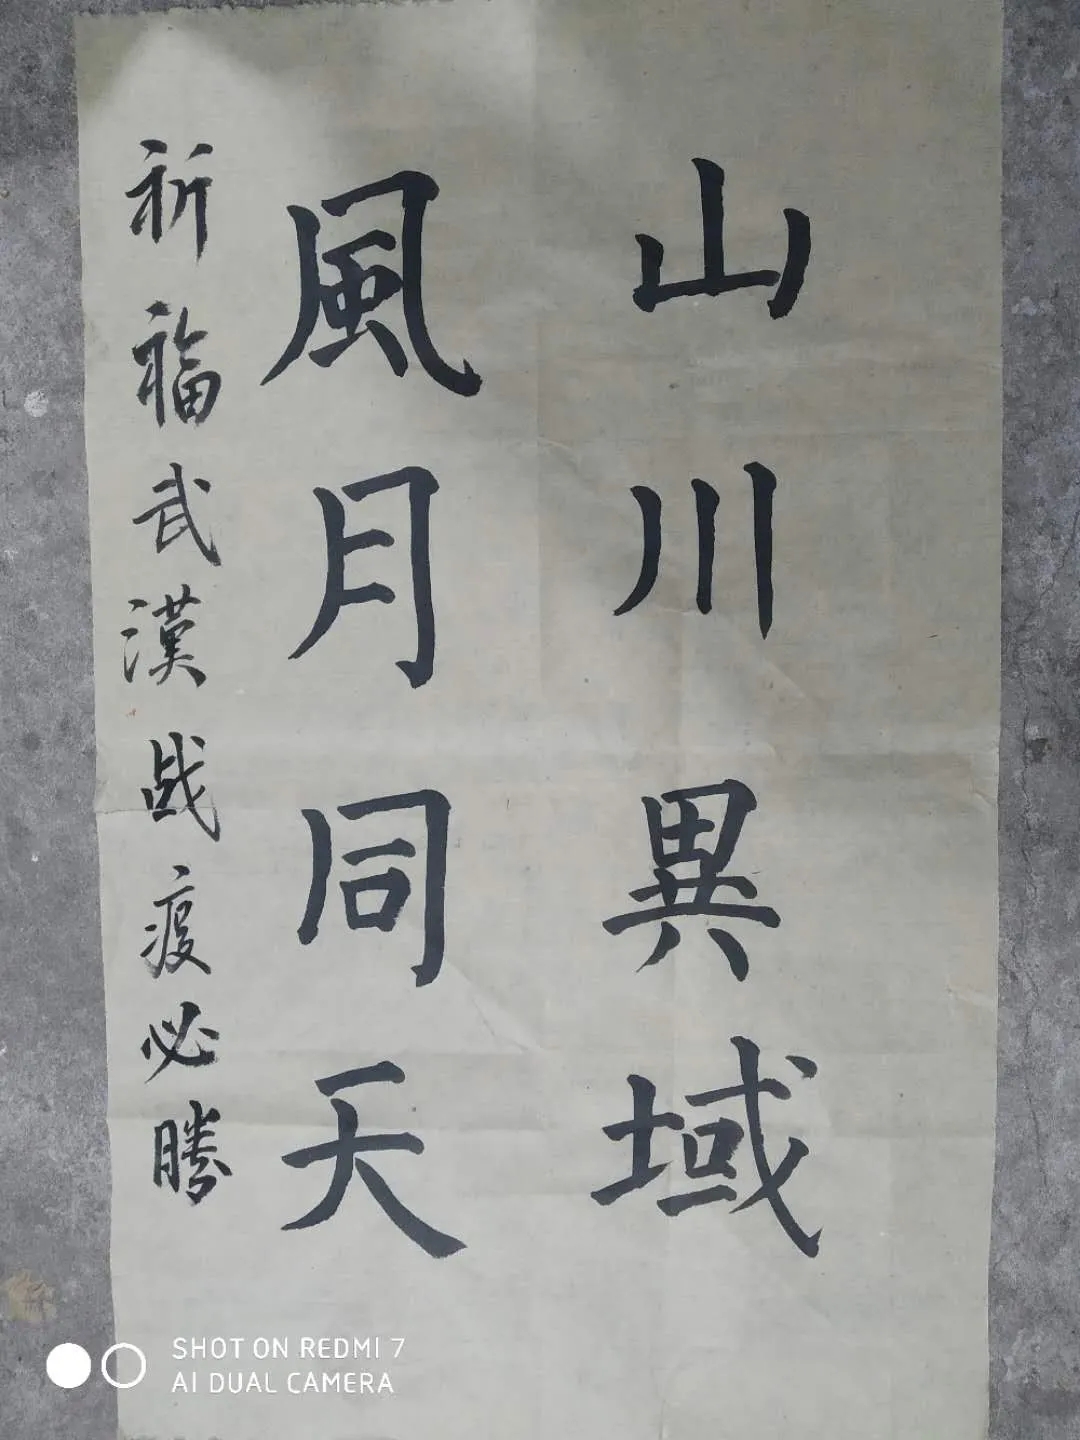 山川異域
風月同天
祈福武漢战疫必勝
SHOT ON REDMI 7
AI DUAL CAMERA